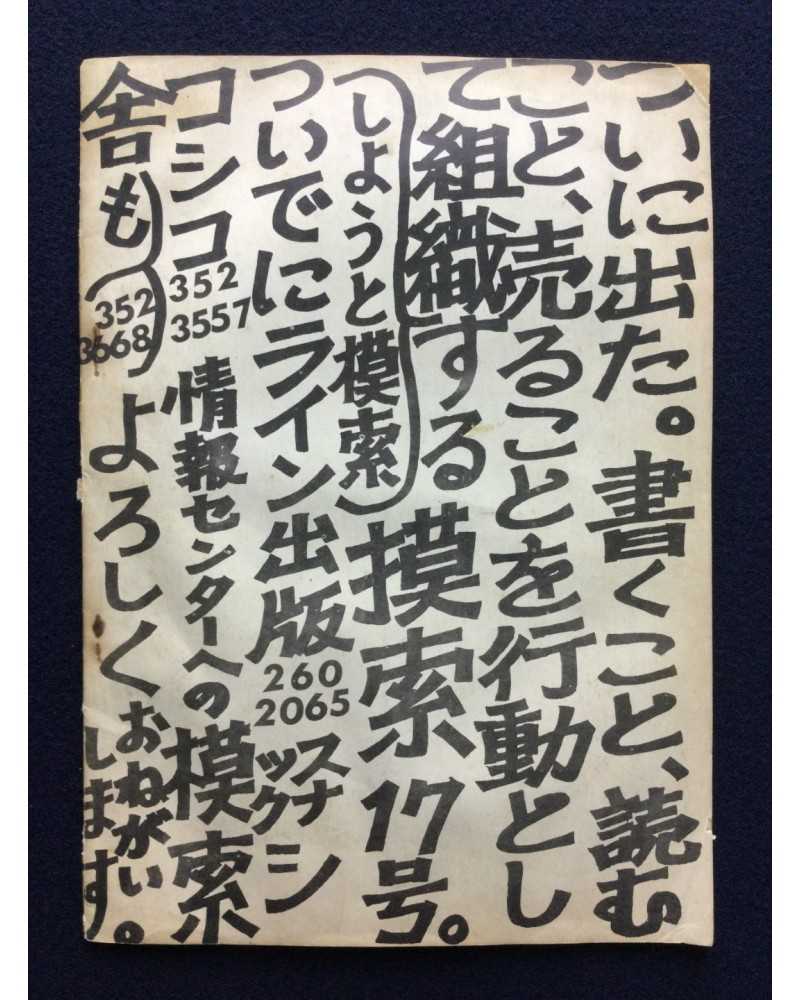 ついに出た。書くこと、読む
こと、売ることを行動とし
て組織する
(しようと模索)摸索17号。
ついでにライン出版260 2065スナックシ
コシコ352 3557情報センターへの模索
舎も)(352 3668)よろしくおねがいします。